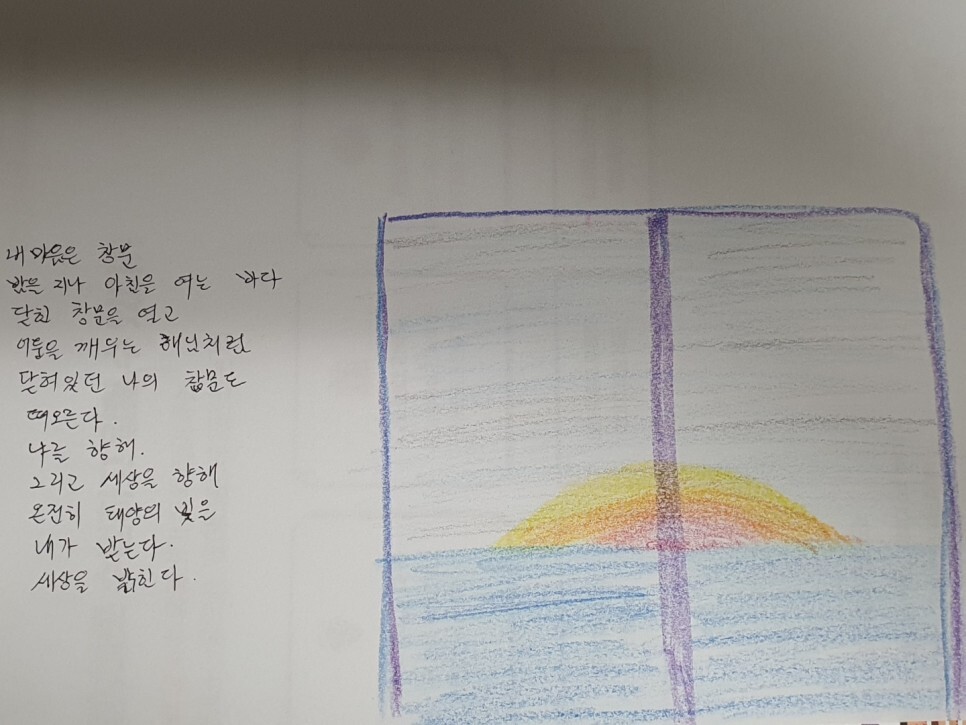 내 마음은 창문
밤을 지나 아침을 여는 바다
닫힌 창문을 열고
어둠을 깨우는 해님처럼
닫혀있던 나의 창문도
떠오른다.
나를 향해.
그리고 세상을 향해
온전히 태양의 빛을
내가 받는다.
세상을 밝힌다.